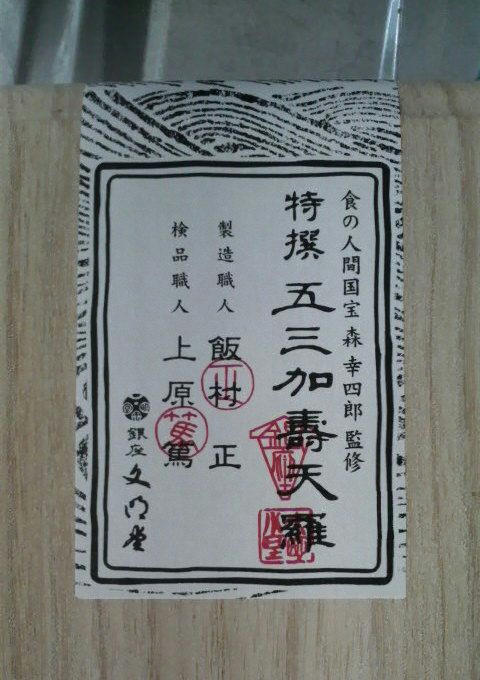 食の人間国宝 森幸四郎 監修
特撰 五三加壽天羅
製造職人 飯村 正
検品職人 上原 篤
銀座 文明堂
正
篤